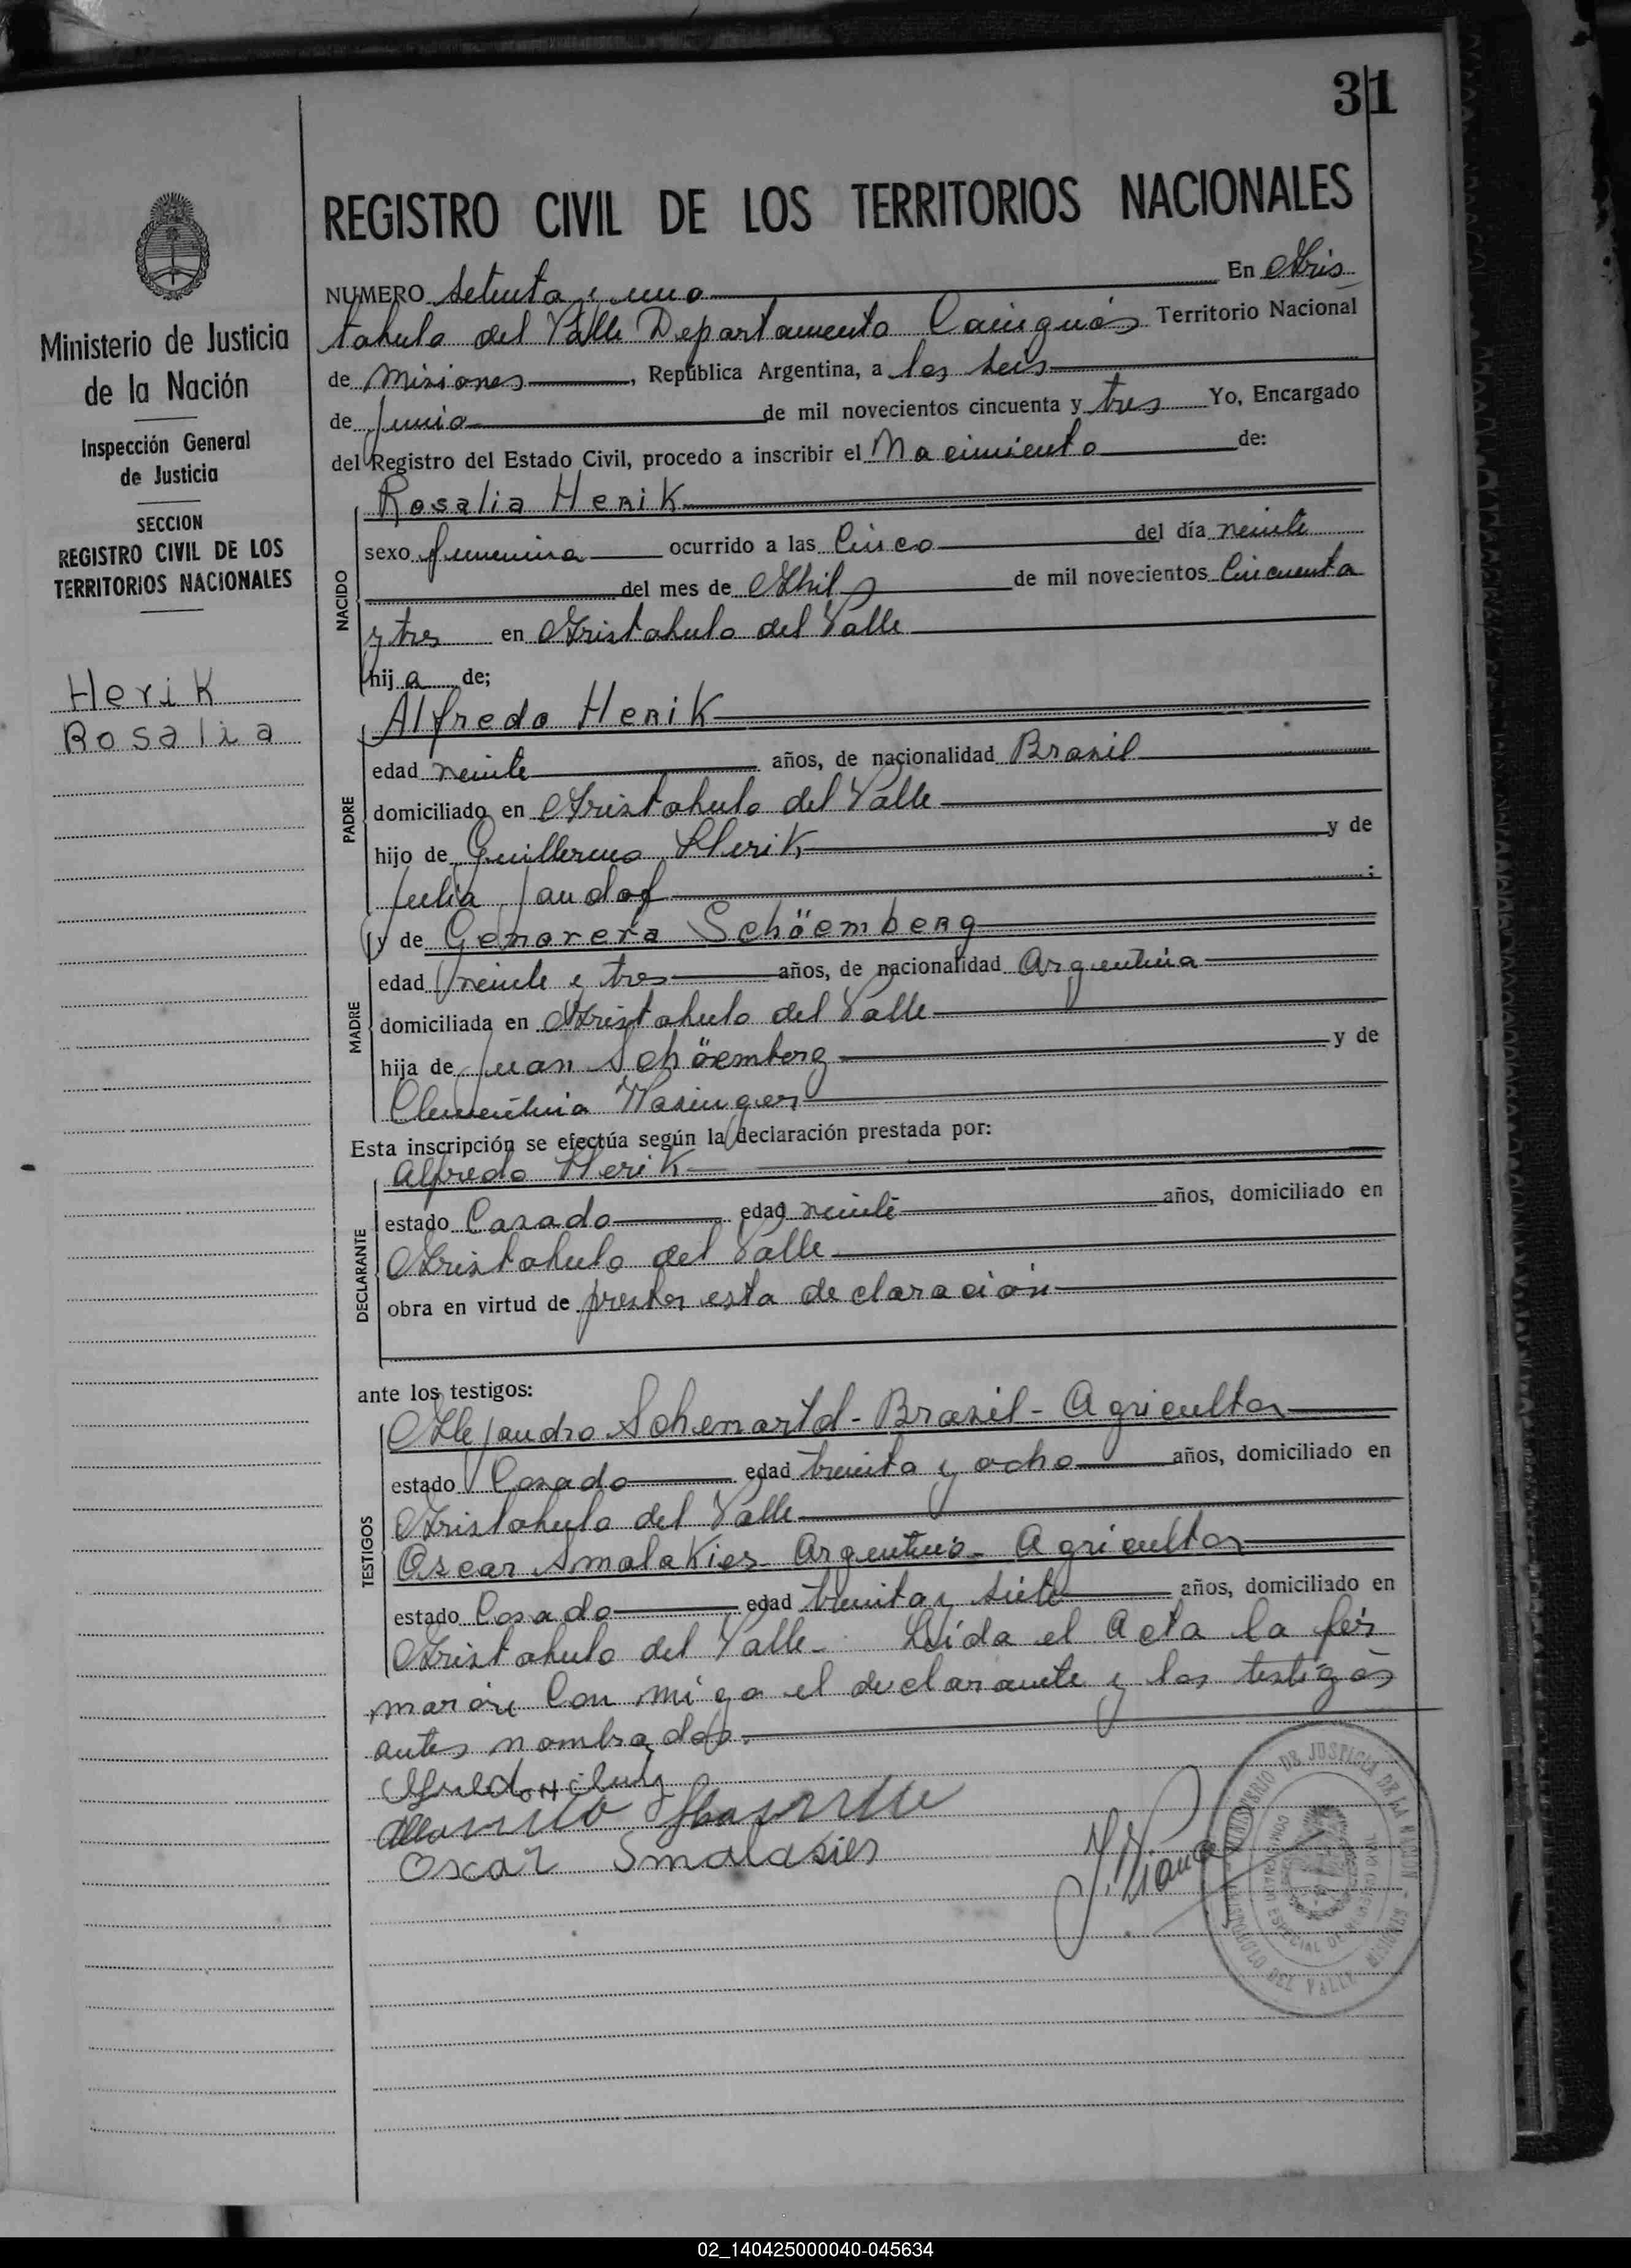 31
REGISTRO CIVIL DE LOS TERRITORIOS NACIONALES
Ministerio de Justicia
de la Nación
Inspección General
de Justicia
SECCION
REGISTRO CIVIL DE LOS
TERRITORIOS NACIONALES
Herik
Rosalia
NUMERO setenta y uno En Aris
tobulo del Valle Departamento Cainguás Territorio Nacional
de Misiones, República Argentina, a los seis
de Junio de mil novecientos cincuenta y tres Yo, Encargado
del Registro del Estado Civil, procedo a inscribir el Nacimiento de:
NACIDO
Rosalia Herik
sexo femenina ocurrido a las Cinco del día veinte
del mes de Abril de mil novecientos Cincuenta
y tres en Aristobulo del Valle
hij a de;
PADRE
Alfredo Herik
edad veinte años, de nacionalidad Brasil
domiciliado en Aristobulo del Valle
hijo de Guillermo Herik y de
Julia Jandof :
MADRE
y de Genorera Schöemberg
edad veinte y tres años, de nacionalidad Argentina
domiciliada en Aristobulo del Valle
hija de Juan Schöemberg y de
Clementina
Esta inscripción se efectúa según la declaración prestada por:
DECLARANTE
Alfredo Herik
estado Casado edad veinte años, domiciliado en
Aristobulo del Valle
obra en virtud de prestar esta declaración
ante los testigos:
TESTIGOS
Alejandro Schenartd - Brasil - Agricultor
estado Casado edad treinta y ocho años, domiciliado en
Aristobulo del Valle
Oscar Smalakies - Argentino - Agricultor
estado Casado edad treinta y siete años, domiciliado en
Aristobulo del Valle - Leida el Acta la fir
maron Con migo el declarante y los testigos
antes nombrados.
Oscar Smalakies
MINISTERIO DE JUSTICIA DE LA NACION
ARISTOBULO DEL VALLE MISIONES
02_140425000040-045634